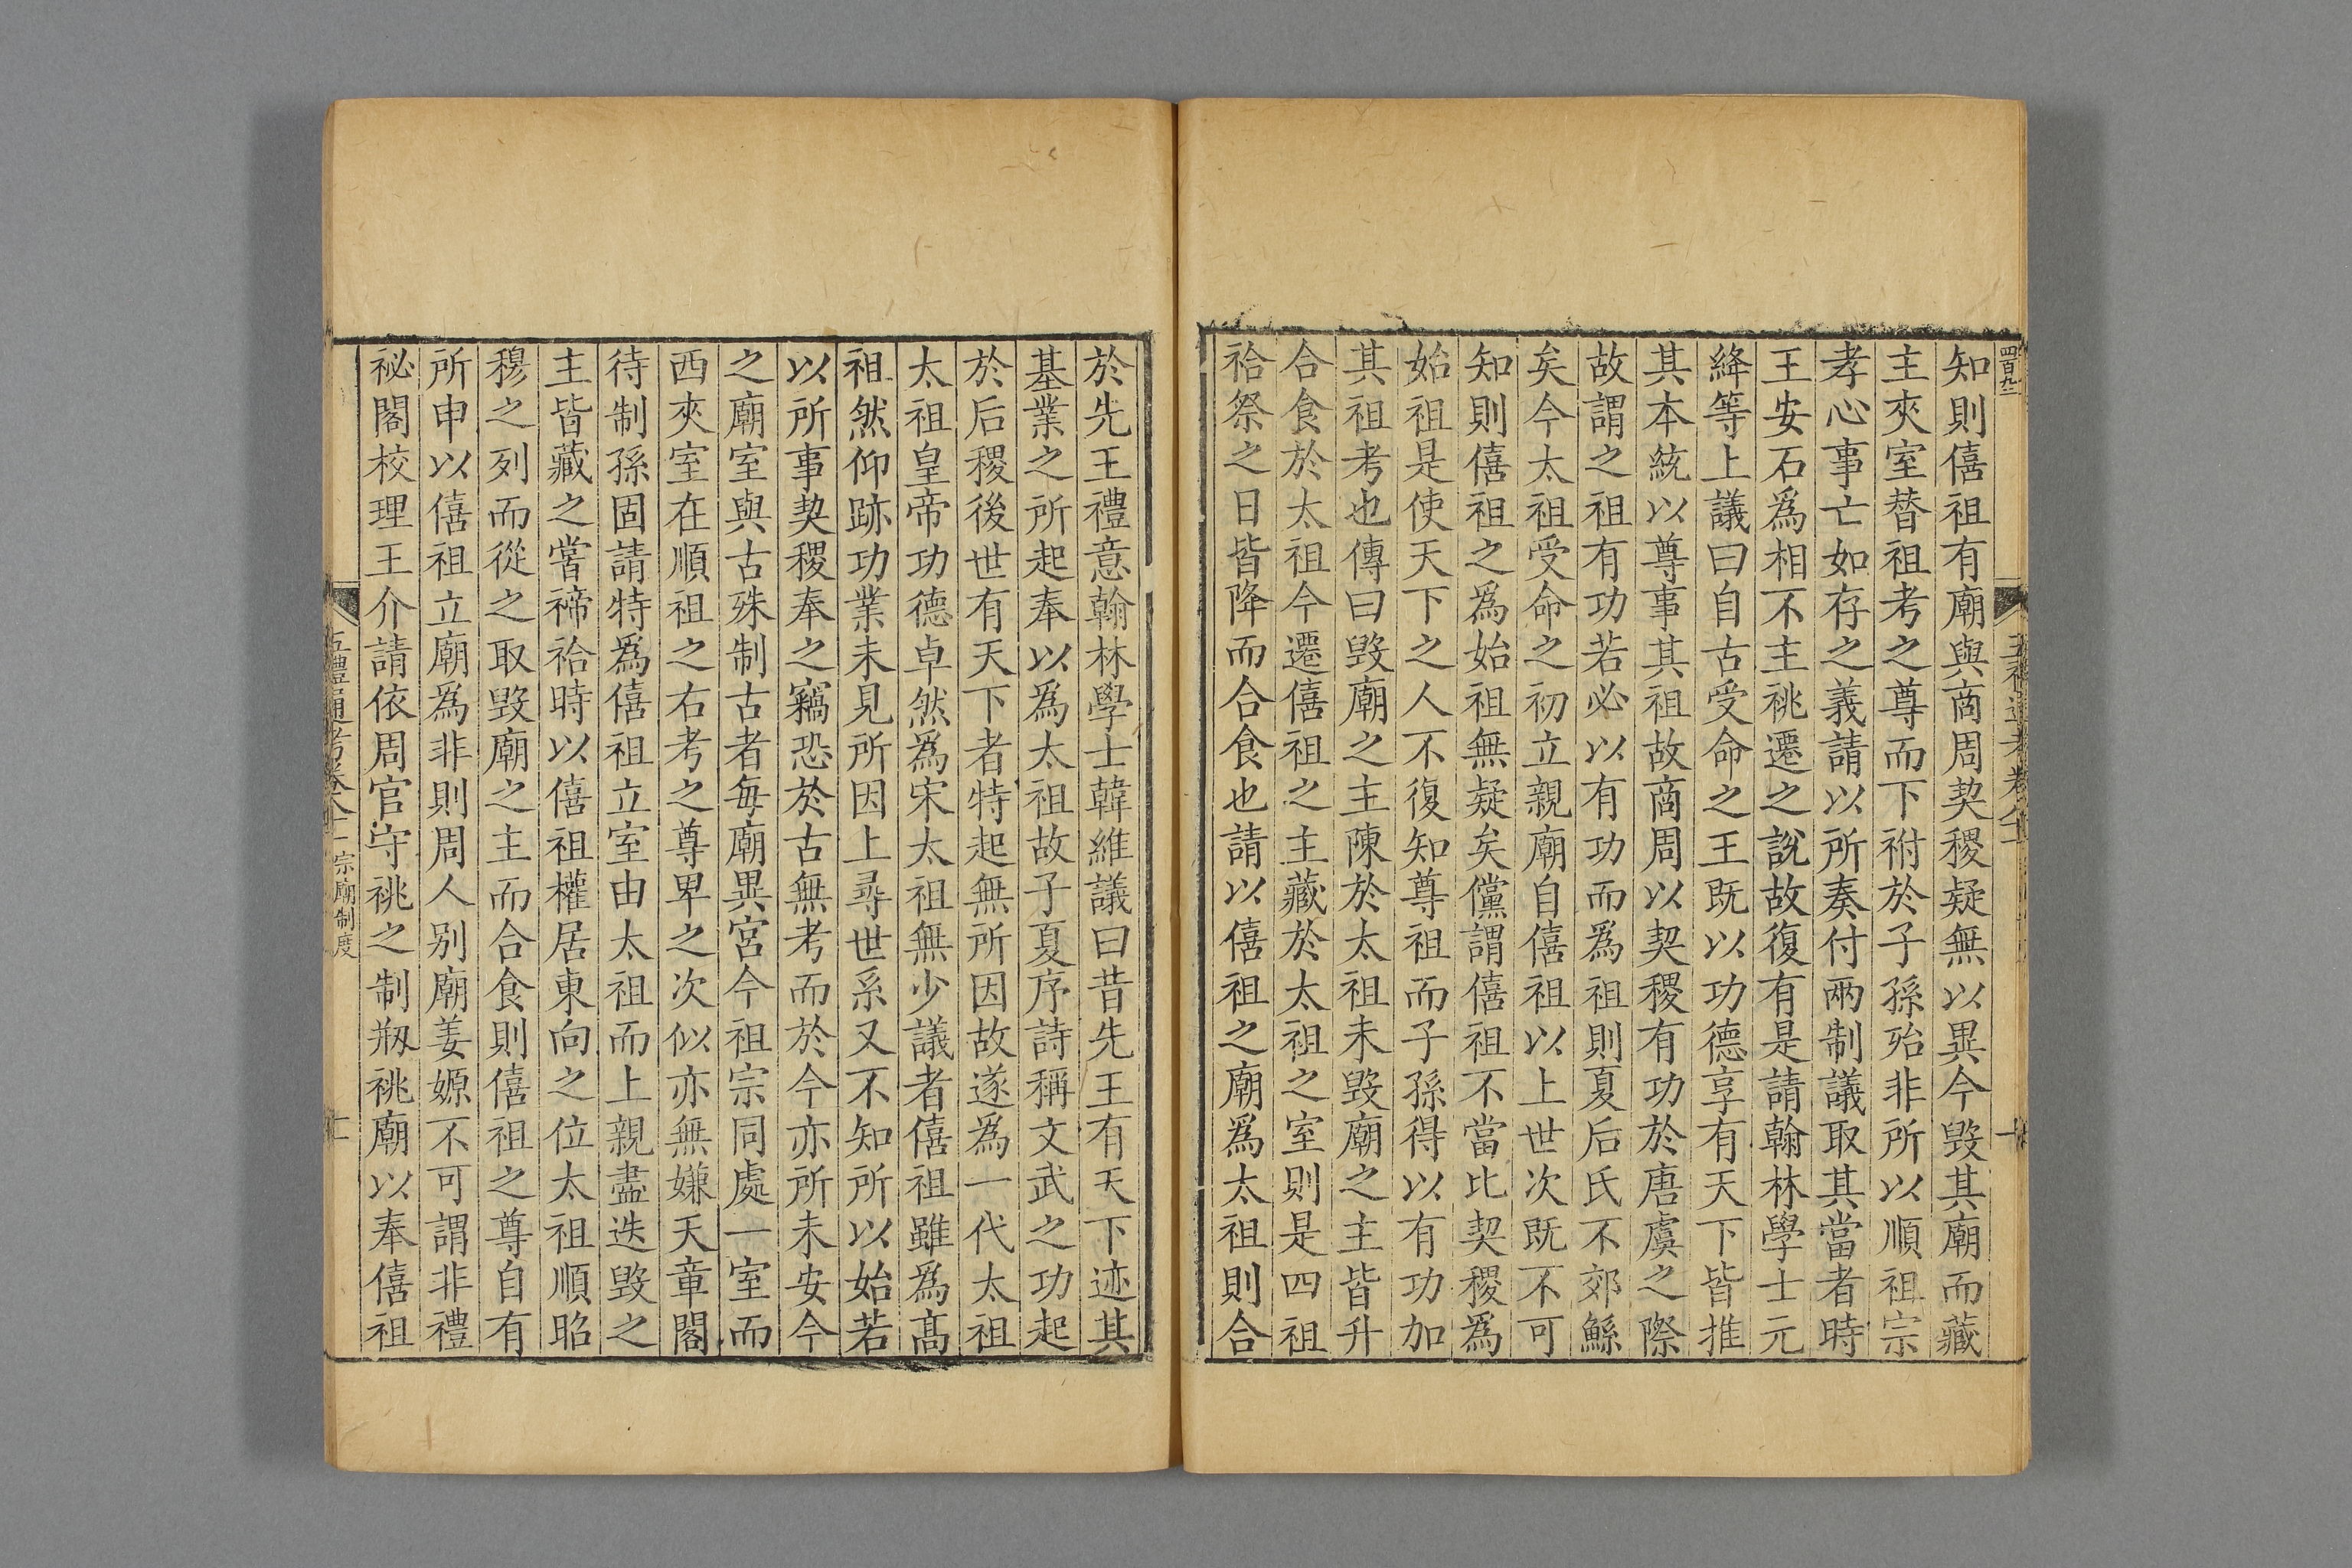 知則僖祖有廟與商周契稷疑無以異今毀其廟而藏
主夾室替祖考之尊而下祔於子孫殆非所以順祖宗
孝心事亡如存之義請以所奏付兩制議取其當者時
王安石爲相不主祧遷之說故復有是請翰林學士元
絳等上議曰自古受命之王既以功德享有天下皆推
其本統以尊事其祖故商周以契稷有功於唐虞之際
故謂之祖有功若必以有功而爲祖則夏后氏不郊鯀
矣今太祖受命之初立親廟自僖祖以上世次既不可
知則僖祖之爲始祖無疑矣儻謂僖祖不當比契稷爲
始祖是使天下之人不復知尊祖而子孫得以有功加
其祖考也傳曰毀廟之主陳於太祖未毀廟之主皆升
合食於太祖今遷僖祖之主藏於太祖之室則是四祖
祫祭之日皆降而合食也請以僖祖之廟爲太祖則合
於先王禮意翰林學士韓維議曰昔先王有天下迹其
基業之所起奉以爲太祖故子夏序詩稱文武之功起
於后稷後世有天下者特起無所因故遂爲一代太祖
太祖皇帝功德卓然爲宋太祖無少議者僖祖雖爲髙
祖然仰跡功業未見所因上尋世系又不知所以始若
以所事契稷奉之竊恐於古無考而於今亦所未安今
之廟室與古殊制古者每廟異宮今祖宗同處一室而
西夾室在順祖之右考之尊卑之次似亦無嫌天章閣
待制孫固請特爲僖祖立室由太祖而上親盡迭毀之
主皆藏之嘗禘祫時以僖祖權居東向之位太祖順昭
穆之列而從之取毀廟之主而合食則僖祖之尊自有
所申以僖祖立廟爲非則周人别廟姜嫄不可謂非禮
祕閣校理王介請依周官守祧之制剏祧廟以奉僖祖
五禮通考卷八十一 宗廟制度 十一